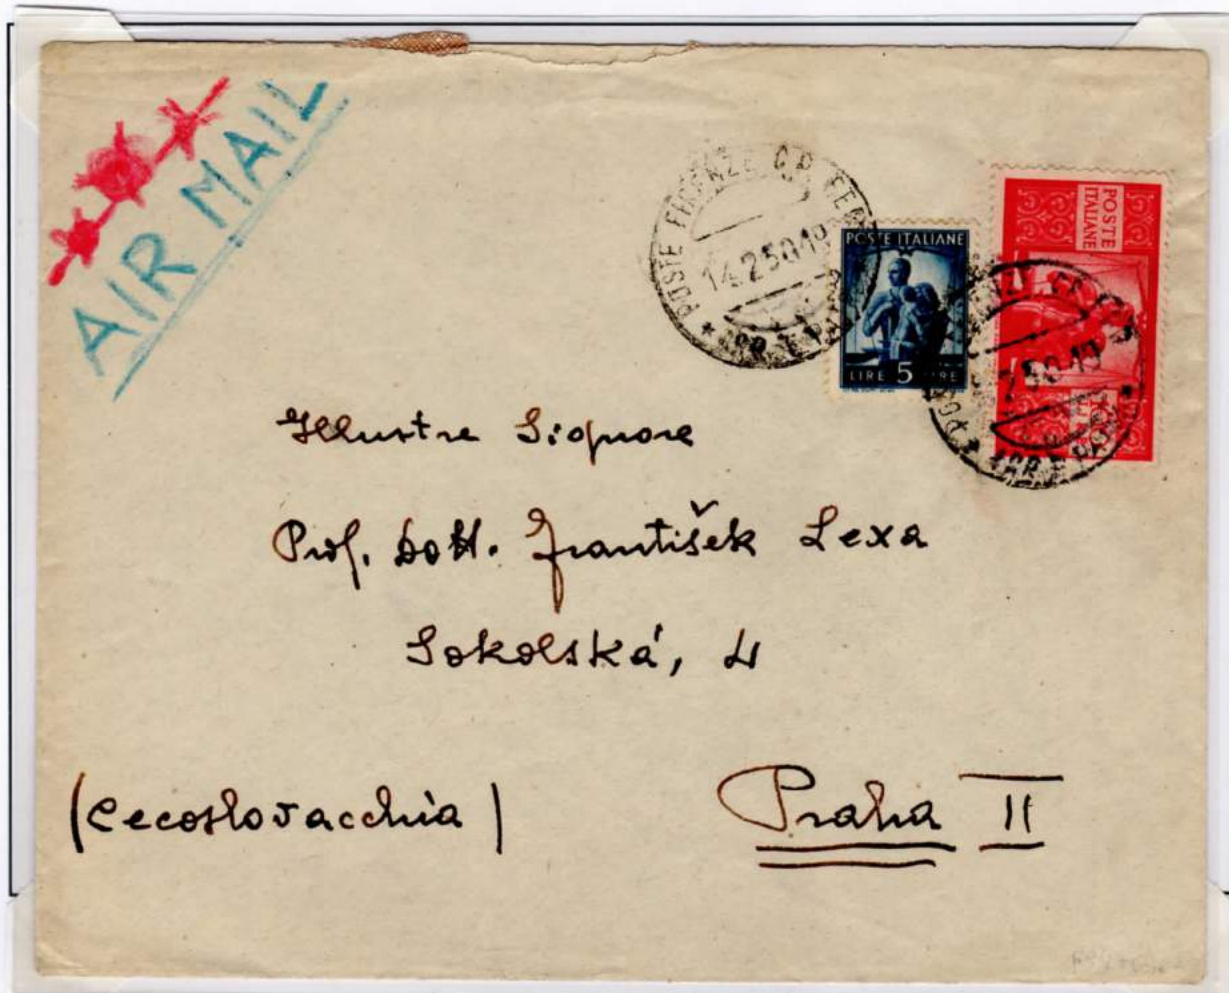 AIR MAIL
POSTE FIRENZE
14.2.50.19
POSTE ITALIANE
LIRE 5 LIRE
POSTE
ITALIANE
2.50.19
Illustre Signore
Prof. Dott. František Lexa
Sokolská, 4
(Cecoslovacchia)
Praha II